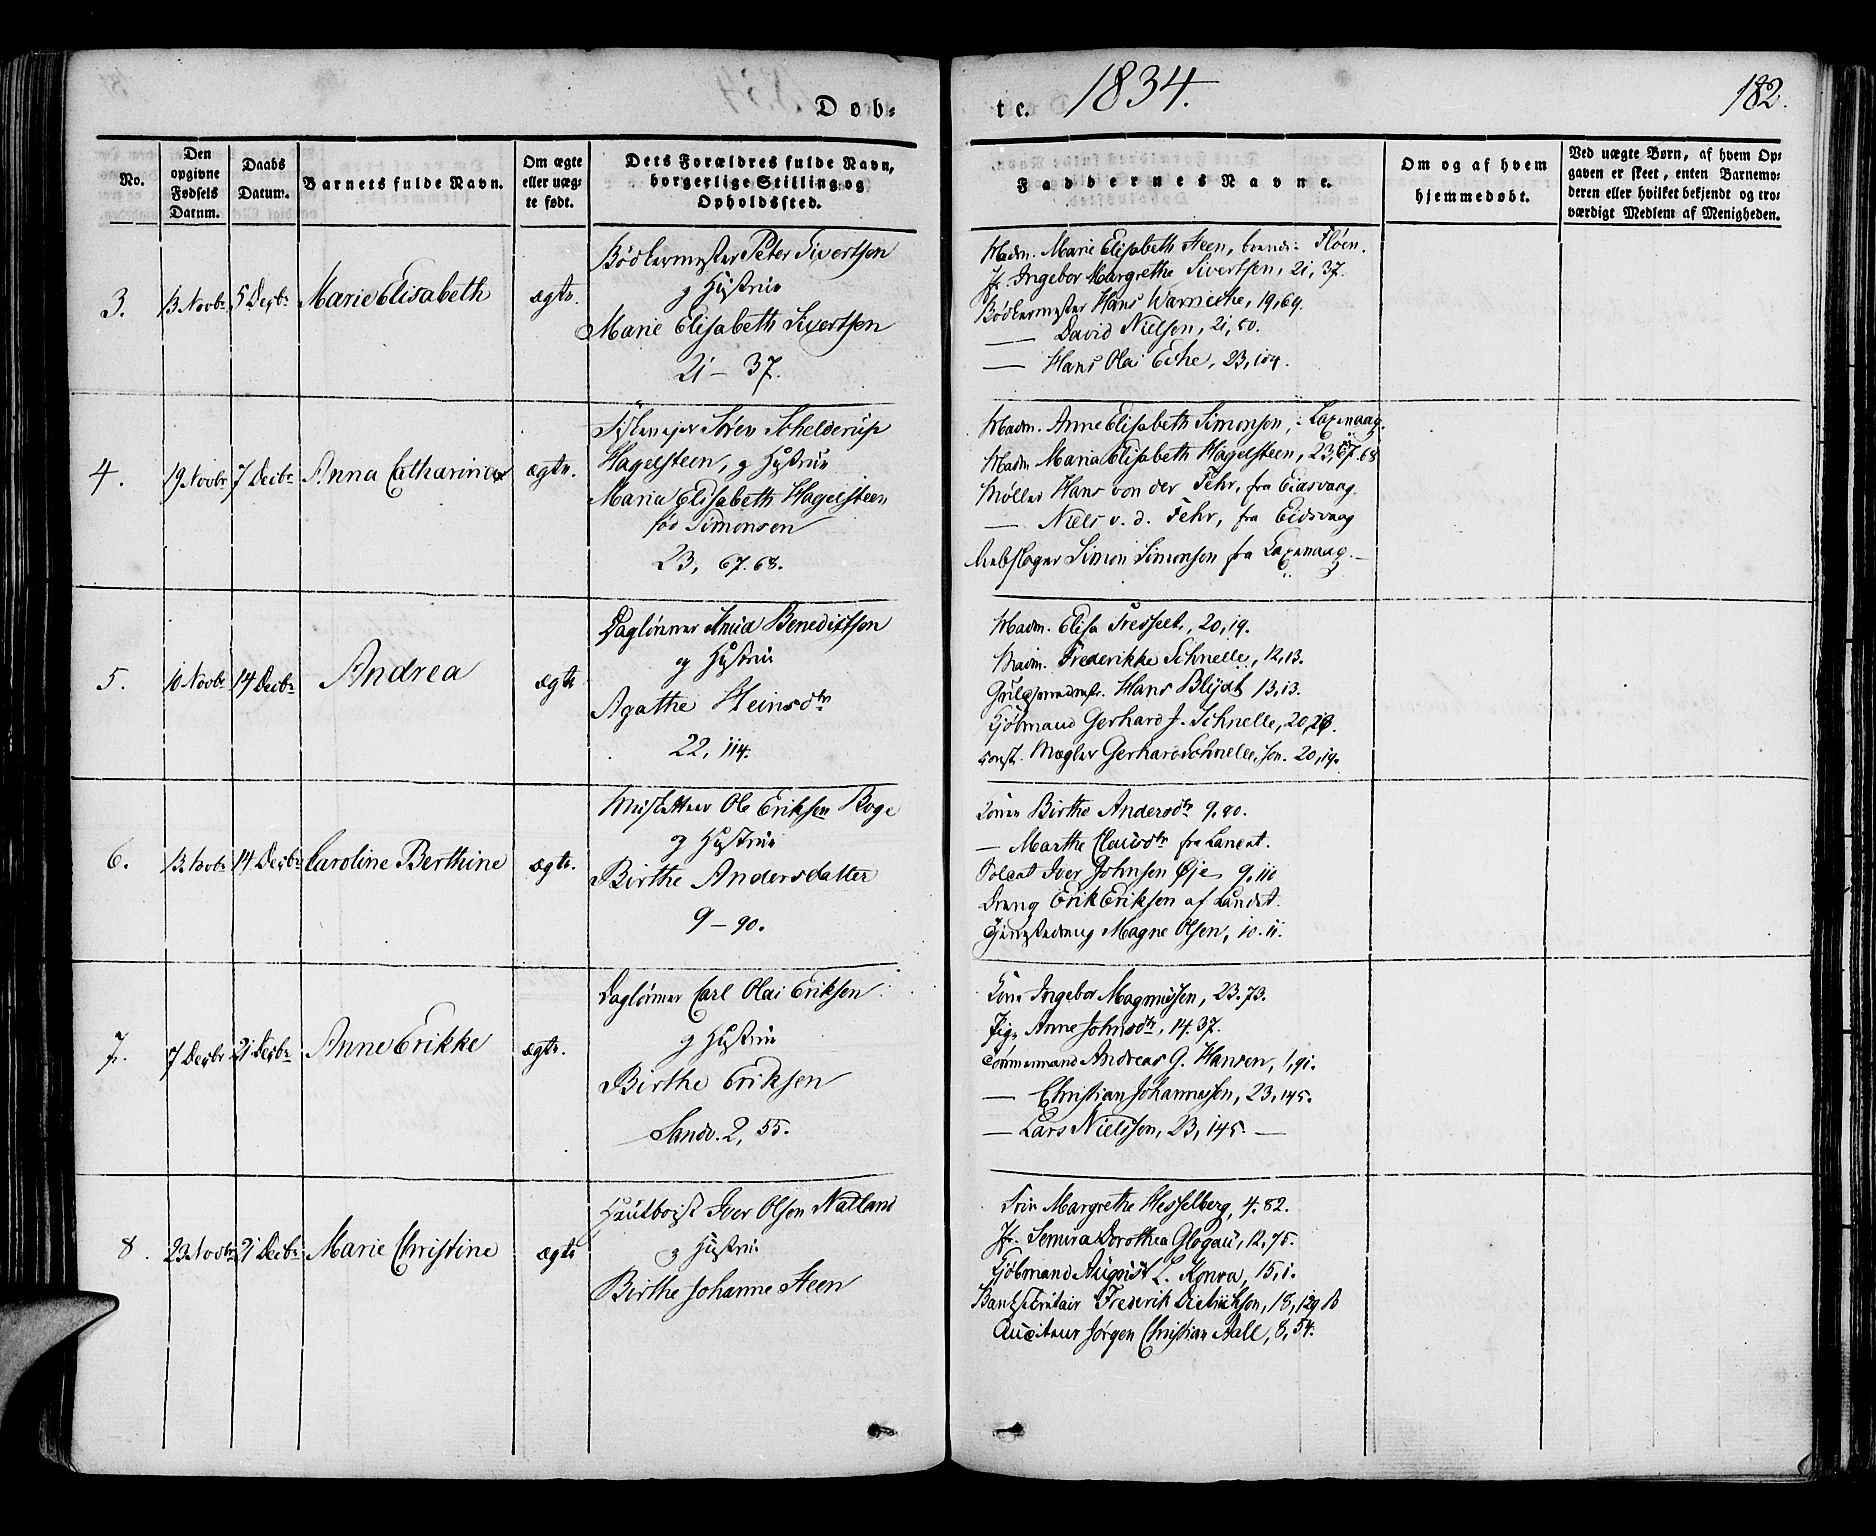 Døb-
te. 1834.
182.
No.
Den opgivne Fødsels Datum.
Daabs Datum.
Barnets fulde Navn.
Om ægte eller uæg- te født.
Dets Forældres fulde Navn, borgerlige Stilling og Opholdssted.
Faddernes Navne.
Om og af hvem hjemmedøbt.
Ved uægte Børn, af hvem Op- gaven er skeet, enten Barnemo- deren eller hvilket bekjendt og tro- værdigt Medlem af Menigheden.
3. 13 Novbr 5 Decbr Marie Elisabeth ægte.
Bødkermester Peter Sivertsen
og Hustrue
Marie Elisabeth Sivertsen
21 – 37.
Madm. Marie Elisabeth Steen, Fløen.
Jfr. Ingebor Margrethe Sivertsen, 21, 37.
Bødkermester Hans Warnicke, 19,69.
— David Nielsen, 21, 50.
— Hans Olai Eche, 23,104.
4. 19 Novbr 7 Decbr Anna Catharina ægte.
Søren Schelderup
Hagelsteen, og Hustrue
Maria Elisabeth Hagelsteen
fød Simonsen
23, 67.68.
Madm. Anne Elisabeth Simonsen, Laxevaag.
Madm Maria Elisabeth Hagelsteen, 23,67.68
Møller Hans von der Fehr, fra Eidsvaag
— Niels v. d. Fehr, fra Eidsvaag
Rebslager Simon Simonsen fra Laxevaag. —
5. 10 Novbr 14 Decbr Andrea ægte
Dagleiner Benedictsen
og Hustrue
Agathe Heinsdtr
22, 114.
Madm. Elisa Fresselt, 20,19.
Madm. Frederikke Schnelle, 12,13.
Guldsmedmstr. Hans Blydt 13,13.
Kjøbmand Gerhard J. Schnelle, 20,
const. Mægler Gerhard Schnelle, Jon. 20,19.
6. 13 Novbr 14 Decbr Caroline Berthine ægte.
Ole Eriksen Roge
og Hustrue
Birthe Andersdatter
9 – 90.
Konen Birthe Andersdtr 9.90.
— Marthe Clausdtr fra Landet.
Soldat Iver Johnsen Øje, 9.110
Dreng Erik Eriksen af Landet.
Tjenestedreng Magne Olsen, 10.11.
7. 7 Decbr 21 Decbr Anne Erikke ægte.
Dagleiner Carl Olai Eriksen
og Hustrue
Birthe Eriksen
Sandv. 2, 55.
Kone Ingebor Magnussen, 23.73.
Pige Anne Johnsdtr, 14.37.
Tømmermand Andreas G. Hansen, 1,91.
— Christian Johannessen, 23,145.
— Lars Nielssen, 23,145. —
8. 23 Novbr 21 Decbr Marie Christine ægte
Hautboist Iver Olsen Natland
og Hustrue
Birthe Johanne Steen
Frue Margrethe Hesselberg, 4.82.
Jfr. Semira Dorothea Glogau, 12.75.
Kjøbmand August L. Konra, 15,1.
Banksekretair Frederik Dietrichson, 18, 129 B
Auditeur Jørgen Christian Aall, 8, 54.